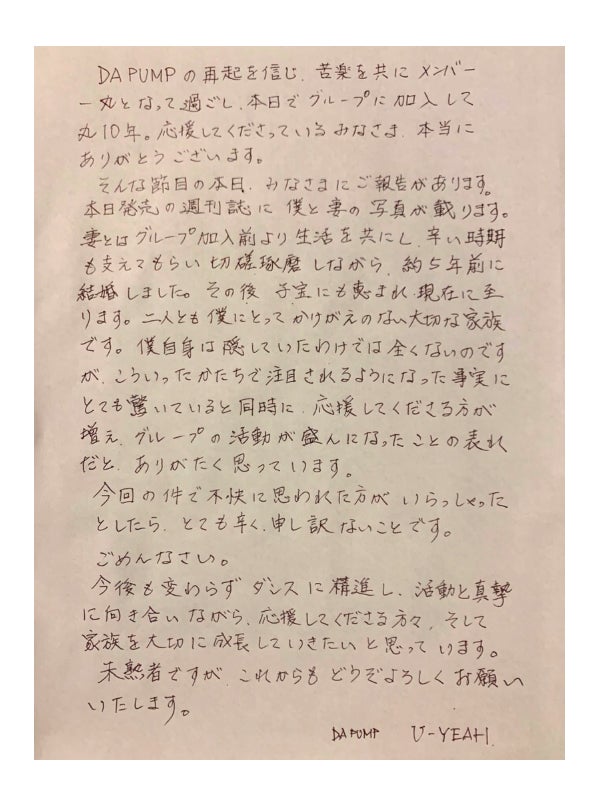 DA PUMPの再起を信じ、苦楽を共に メンバー
一丸となって過ごし、本日でグループに加入して
丸10年。応援してくださっているみなさま、本当に
ありがとうございます。
そんな節目の本日、みなさまにご報告があります。
本日発売の週刊誌に 僕と妻の写真が載ります。
妻とはグループ加入前より生活を共にし、辛い時期
も支えてもらい 切磋琢磨しながら、約5年前に
結婚しました。その後 子宝にも恵まれ、現在に至
ります。二人とも僕にとってかけがえのない大切な家族
です。僕自身は隠していたわけでは全くないのです
が、こういったかたちで注目されるようになった事実に
とても驚いていると同時に、応援してくださる方が
増え、グループの活動が盛んになったことの表れ
だと、ありがたく思っています。
今回の件で不快に思われた方が いらっしゃった
としたら、とても辛く、申し訳ないことです。
ごめんなさい。
今後も変わらず ダンスに精進し、活動と真摯
に向き合いながら、応援してくださる方々、そして
家族を大切に成長していきたいと思っています。
未熟者ですが、これからもどうぞよろしくお願い
いたします。
DA PUMP U-YEAH